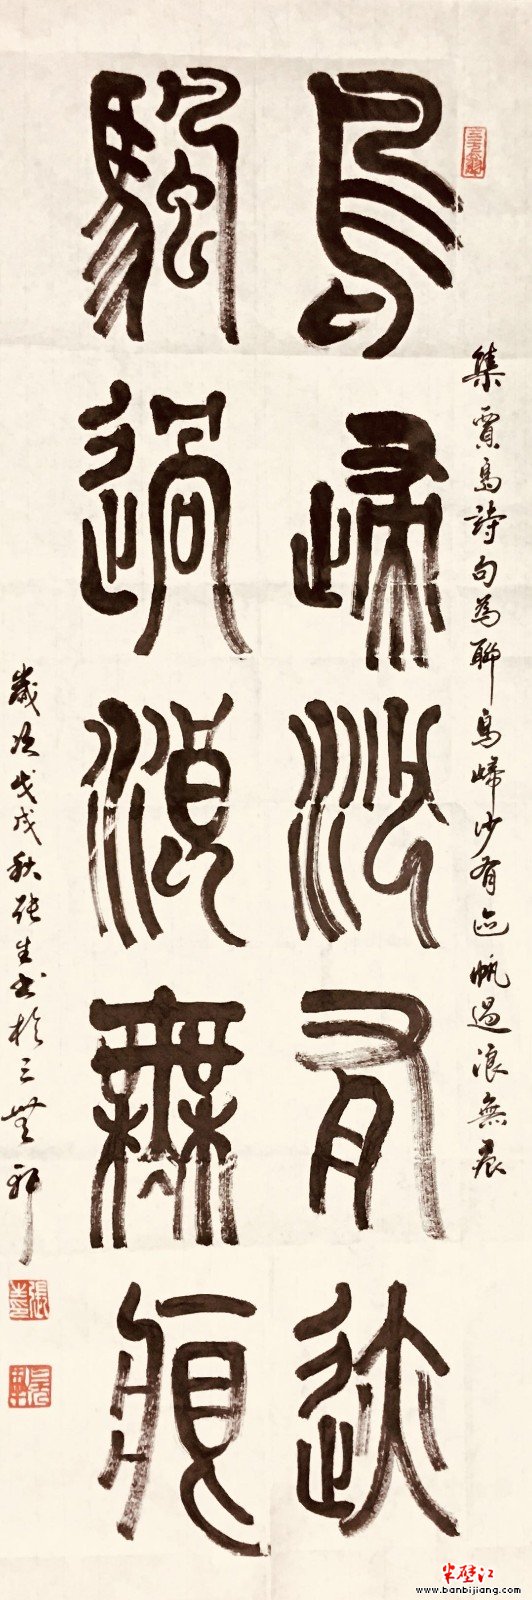 集賈島詩句為聯鳥歸沙有迹帆過浪無痕
鳥歸沙有迹
颿過浪無痕
歲次戊戌秋張生書於三無軒
半壁江
www.banbijiang.com